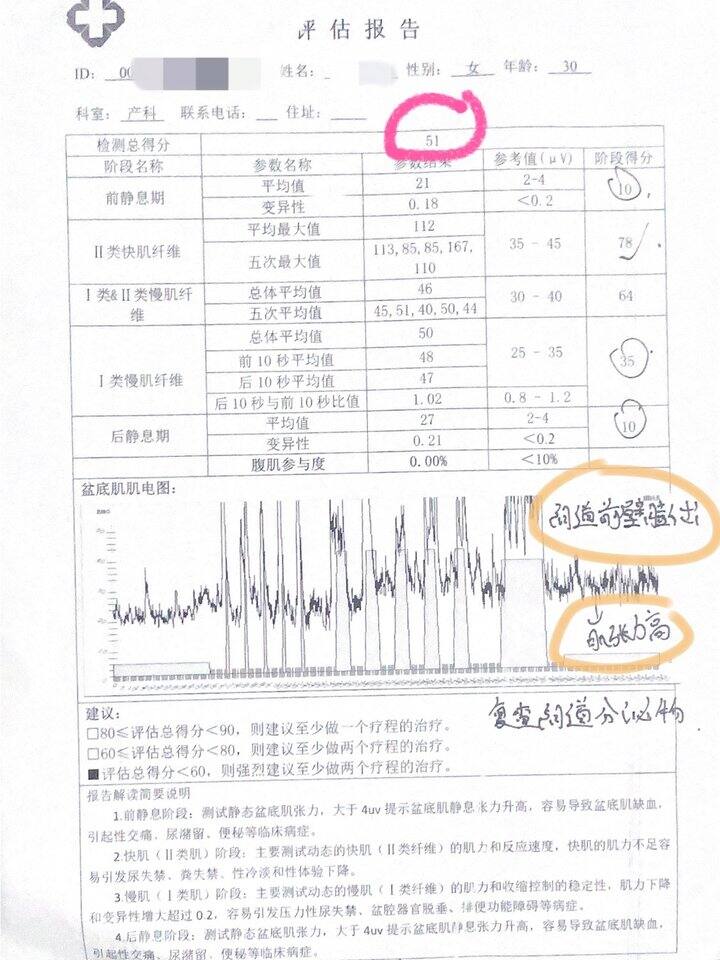 评估报告
ID: 00 姓名: 性别: 女 年龄: 30
科室: 产科 联系电话: 住址:
检测总得分 51
阶段名称 参数名称 参数结果 参考值(μV) 阶段得分
前静息期 平均值 21 2-4 10
变异性 0.18 <0.2
Ⅱ类快肌纤维 平均最大值 112 35 - 45 78
五次最大值 113,85,85,167,
110
Ⅰ类&Ⅱ类慢肌纤维 总体平均值 46 30 - 40 64
五次平均值 45,51,40,50,44
Ⅰ类慢肌纤维 总体平均值 50 25 - 35 35
前10秒平均值 48
后10秒平均值 47
后10秒与前10秒比值 1.02 0.8 - 1.2
后静息期 平均值 27 2-4 10
变异性 0.21 <0.2
腹肌参与度 0.00% <10%
盆底肌肌电图:
阴道前壁膨出
肌张力高
复查阴道分泌物
建议:
□80≤评估总得分<90，则建议至少做一个疗程的治疗。
□60≤评估总得分<80，则建议至少做两个疗程的治疗。
■评估总得分<60，则强烈建议至少做两个疗程的治疗。
报告解读简要说明
1.前静息阶段：测试静态盆底肌张力，大于4uv提示盆底肌静息张力升高，容易导致盆底肌缺血，
引起性交痛、尿潴留、便秘等临床病症。
2.快肌（Ⅱ类肌）阶段：主要测试动态的快肌（Ⅱ类纤维）的肌力和反应速度，快肌的肌力不足容
易引发尿失禁、粪失禁、性冷淡和性体验下降。
3.慢肌（Ⅰ类肌）阶段：主要测试动态的慢肌（Ⅰ类纤维）的肌力和收缩控制的稳定性，肌力下降
和变异性增大超过0.2，容易引发压力性尿失禁、盆腔器官脱垂、排便功能障碍等病症。
4.后静息阶段：测试静态盆底肌张力，大于4uv提示盆底肌静息张力升高，容易导致盆底肌缺血，
引起性交痛、尿潴留、便秘等临床病症。